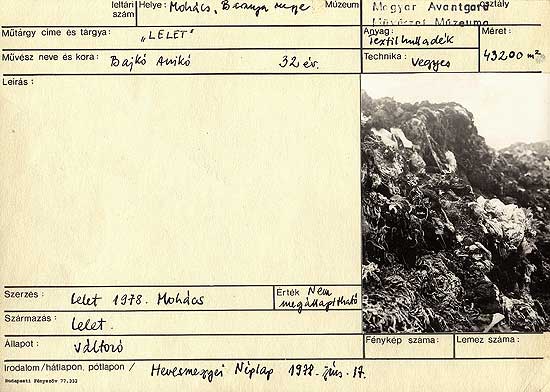 leltári szám
Helye: Mohács, Baranya megye
Múzeum Magyar Avantgard osztály
Művészet Múzeuma
Műtárgy címe és tárgya: „LELET"
Anyag: Textilhulladék
Méret: 43200 m²
Művész neve és kora: Bajkó Anikó 32 év.
Technika: Vegyes
Leírás:
Szerzés: Lelet 1978. Mohács
Érték Nem megállapítható
Származás: Lelet.
Állapot: Változó
Fénykép száma:
Lemez száma:
Irodalom /hátlapon, pótlapon/ Hevesmegyei Néplap 1978. jún. 17.
Budapesti Fényszöv 77.332